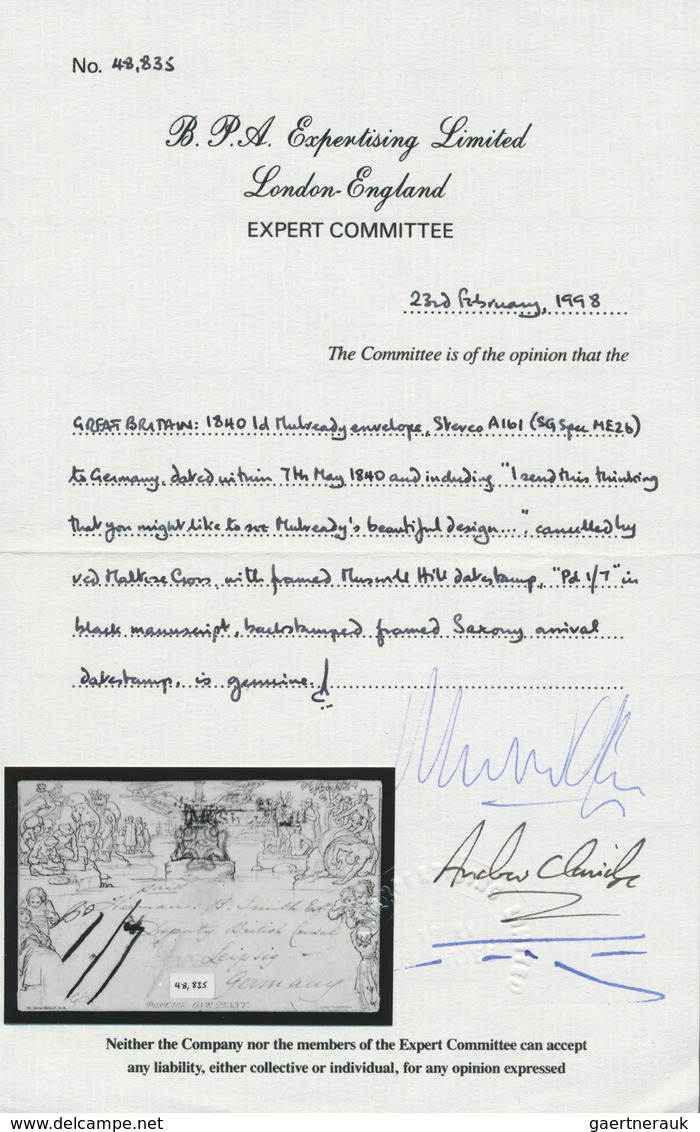 No. 48,835
B. P. A. Expertising Limited
London-England
EXPERT COMMITTEE
23rd February, 1998
The Committee is of the opinion that the
GREAT BRITAIN: 1840 1d Mulready envelope, Stereo A161 (SG Spec ME2b)
to Germany, dated within 7th May 1840 and including "I send this thinking
that you might like to see Mulready's beautiful design...", cancelled by
red Maltese Cross, with framed Muswell Hill datestamp, "Pd 1/7" in
black manuscript, backstamped framed Saxony arrival
datestamp, is genuine.
Andrew
paid
Pd 1/7
Hermann Smith Esqr
Deputy British Consul
Leipzig
Germany
48,835
POSTAGE ONE PENNY.
Neither the Company nor the members of the Expert Committee can accept
any liability, either collective or individual, for any opinion expressed
www.delcampe.net
gaertnerauk